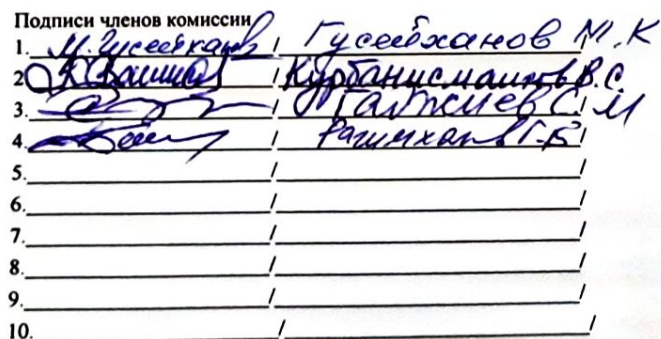 Подписи членов комиссии
1. М.Гусейханов / Гусейханов М.К /
2. / Курбанисмаилов В.С. /
3. / Гаджиев С.М /
4. / Рагимханов Г.Б /
5. / /
6. / /
7. / /
8. / /
9. / /
10. / /